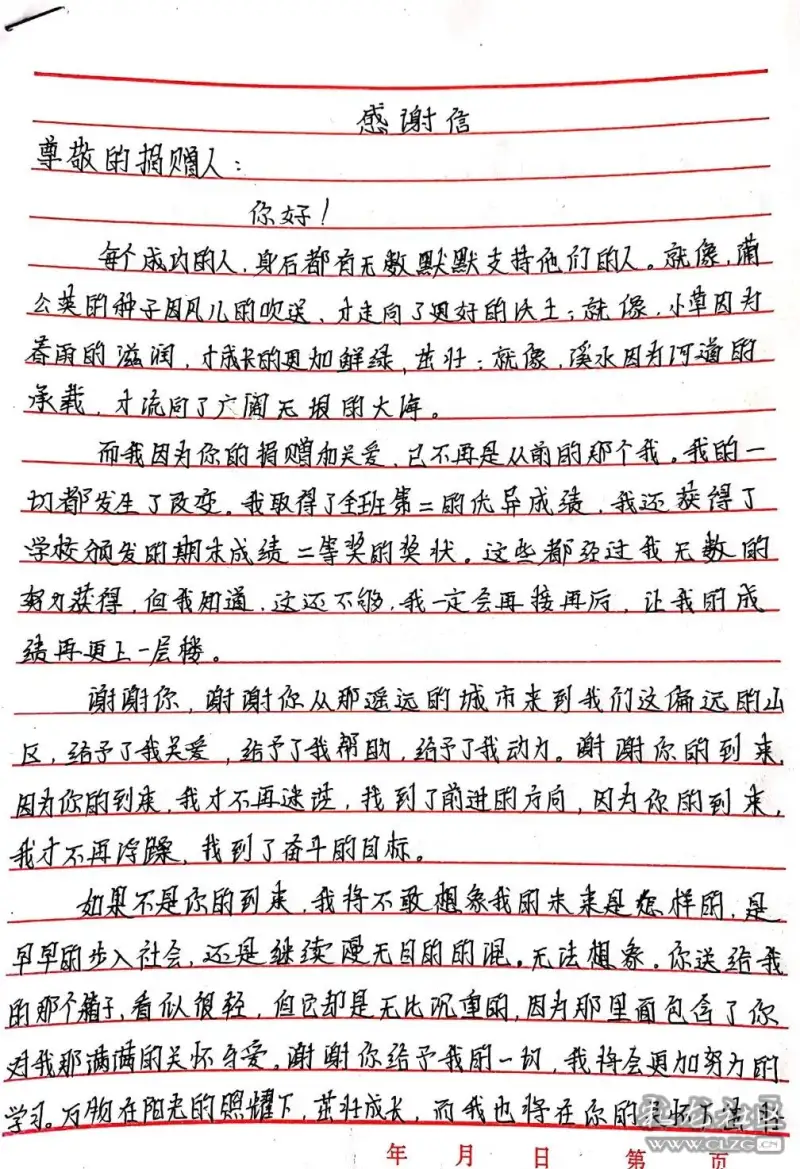 感谢信
尊敬的捐赠人：
你好！
每个成功的人，身后都有无数默默支持他们的人。就像，蒲
公英的种子因风儿的吹送，才走向了更好的沃土；就像，小草因为
春雨的滋润，才成长的更加鲜绿，茁壮；就像，溪水因为河道的
承载，才流向了广阔无垠的大海。
而我因为你的捐赠和关爱，已不再是从前的那个我。我的一
切都发生了改变。我取得了全班第二的优异成绩，我还获得了
学校颁发的期末成绩二等奖的奖状。这些都经过我无数的
努力获得，但我知道，这还不够，我一定会再接再后，让我的成
绩再更上一层楼。
谢谢你，谢谢你从那遥远的城市来到我们这偏远的山
区，给予了我关爱，给予了我帮助，给予了我动力。谢谢你的到来，
因为你的到来，我才不再迷茫，找到了前进的方向，因为你的到来，
我才不再浮躁，我到了奋斗的目标。
如果不是你的到来，我将不敢想象我的未来是怎样的，是
早早的步入社会，还是继续漫无目的的混。无法想象。你送给我
的那个箱子，看似很轻，但它却是无比沉重的，因为那里面包含了你
对我那满满的关怀与爱。谢谢你给予我的一切，我将会更加努力的
学习。万物在阳光的照耀下，茁壮成长，而我也将在你的关怀下茁壮
年 月 日 第 页
WWW.CLZG.CN